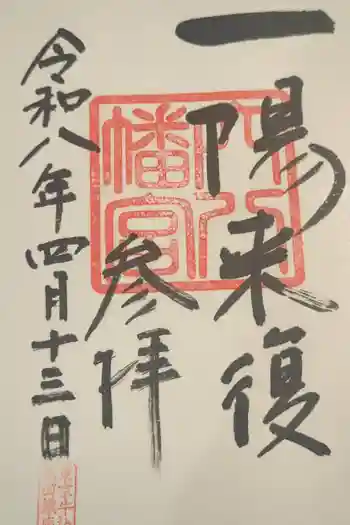 一陽来復
参拝
令和八年四月十三日
穴八
幡宮